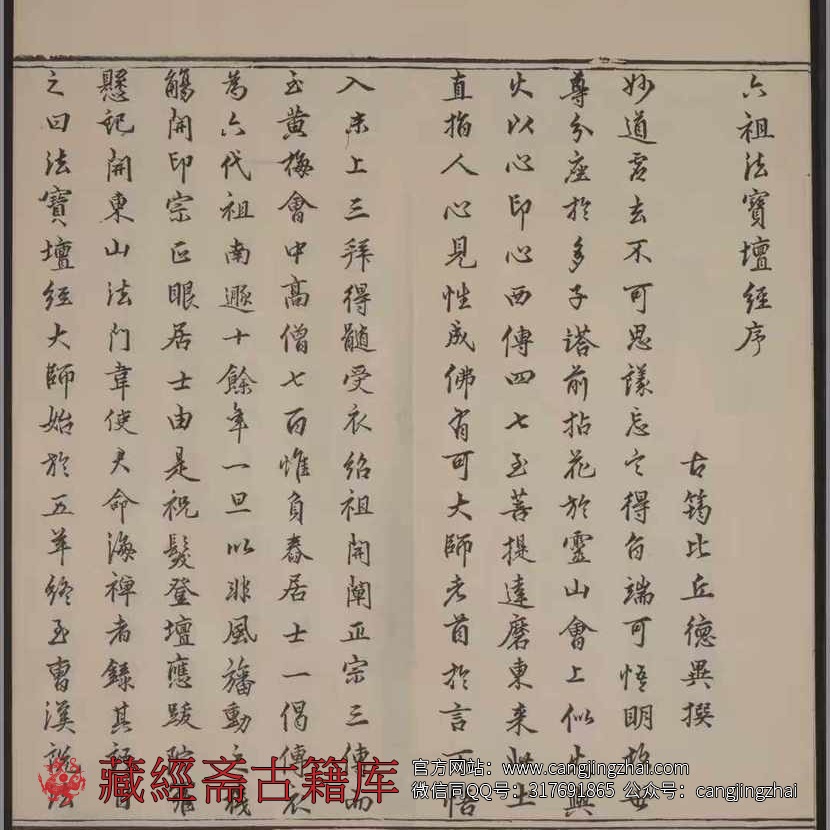 六祖法寶壇經序
古筠比丘德異撰
妙道虛玄不可思議忘言得旨端可悟明故世
尊分座於多子塔前拈花於靈山會上似火與
火以心印心西傳四七至菩提達磨東來此土
直指人心見性成佛有可大師者首於言下悟
入末上三拜得髓受衣紹祖開闡正宗三傳而
至黃梅會中高僧七百惟負舂居士一偈傳衣
為六代祖南遯十餘年一旦以非風旛動之機
觸開印宗正眼居士由是祝髮登壇應跋陀羅
懸記開東山法門韋使君命海禪者錄其語目
之曰法寶壇經大師始於五羊終至曹溪說法
藏經斋古籍库
官方网站：www.cangjingzhai.com
微信同QQ号：317691865 公众号：cangjingzhai